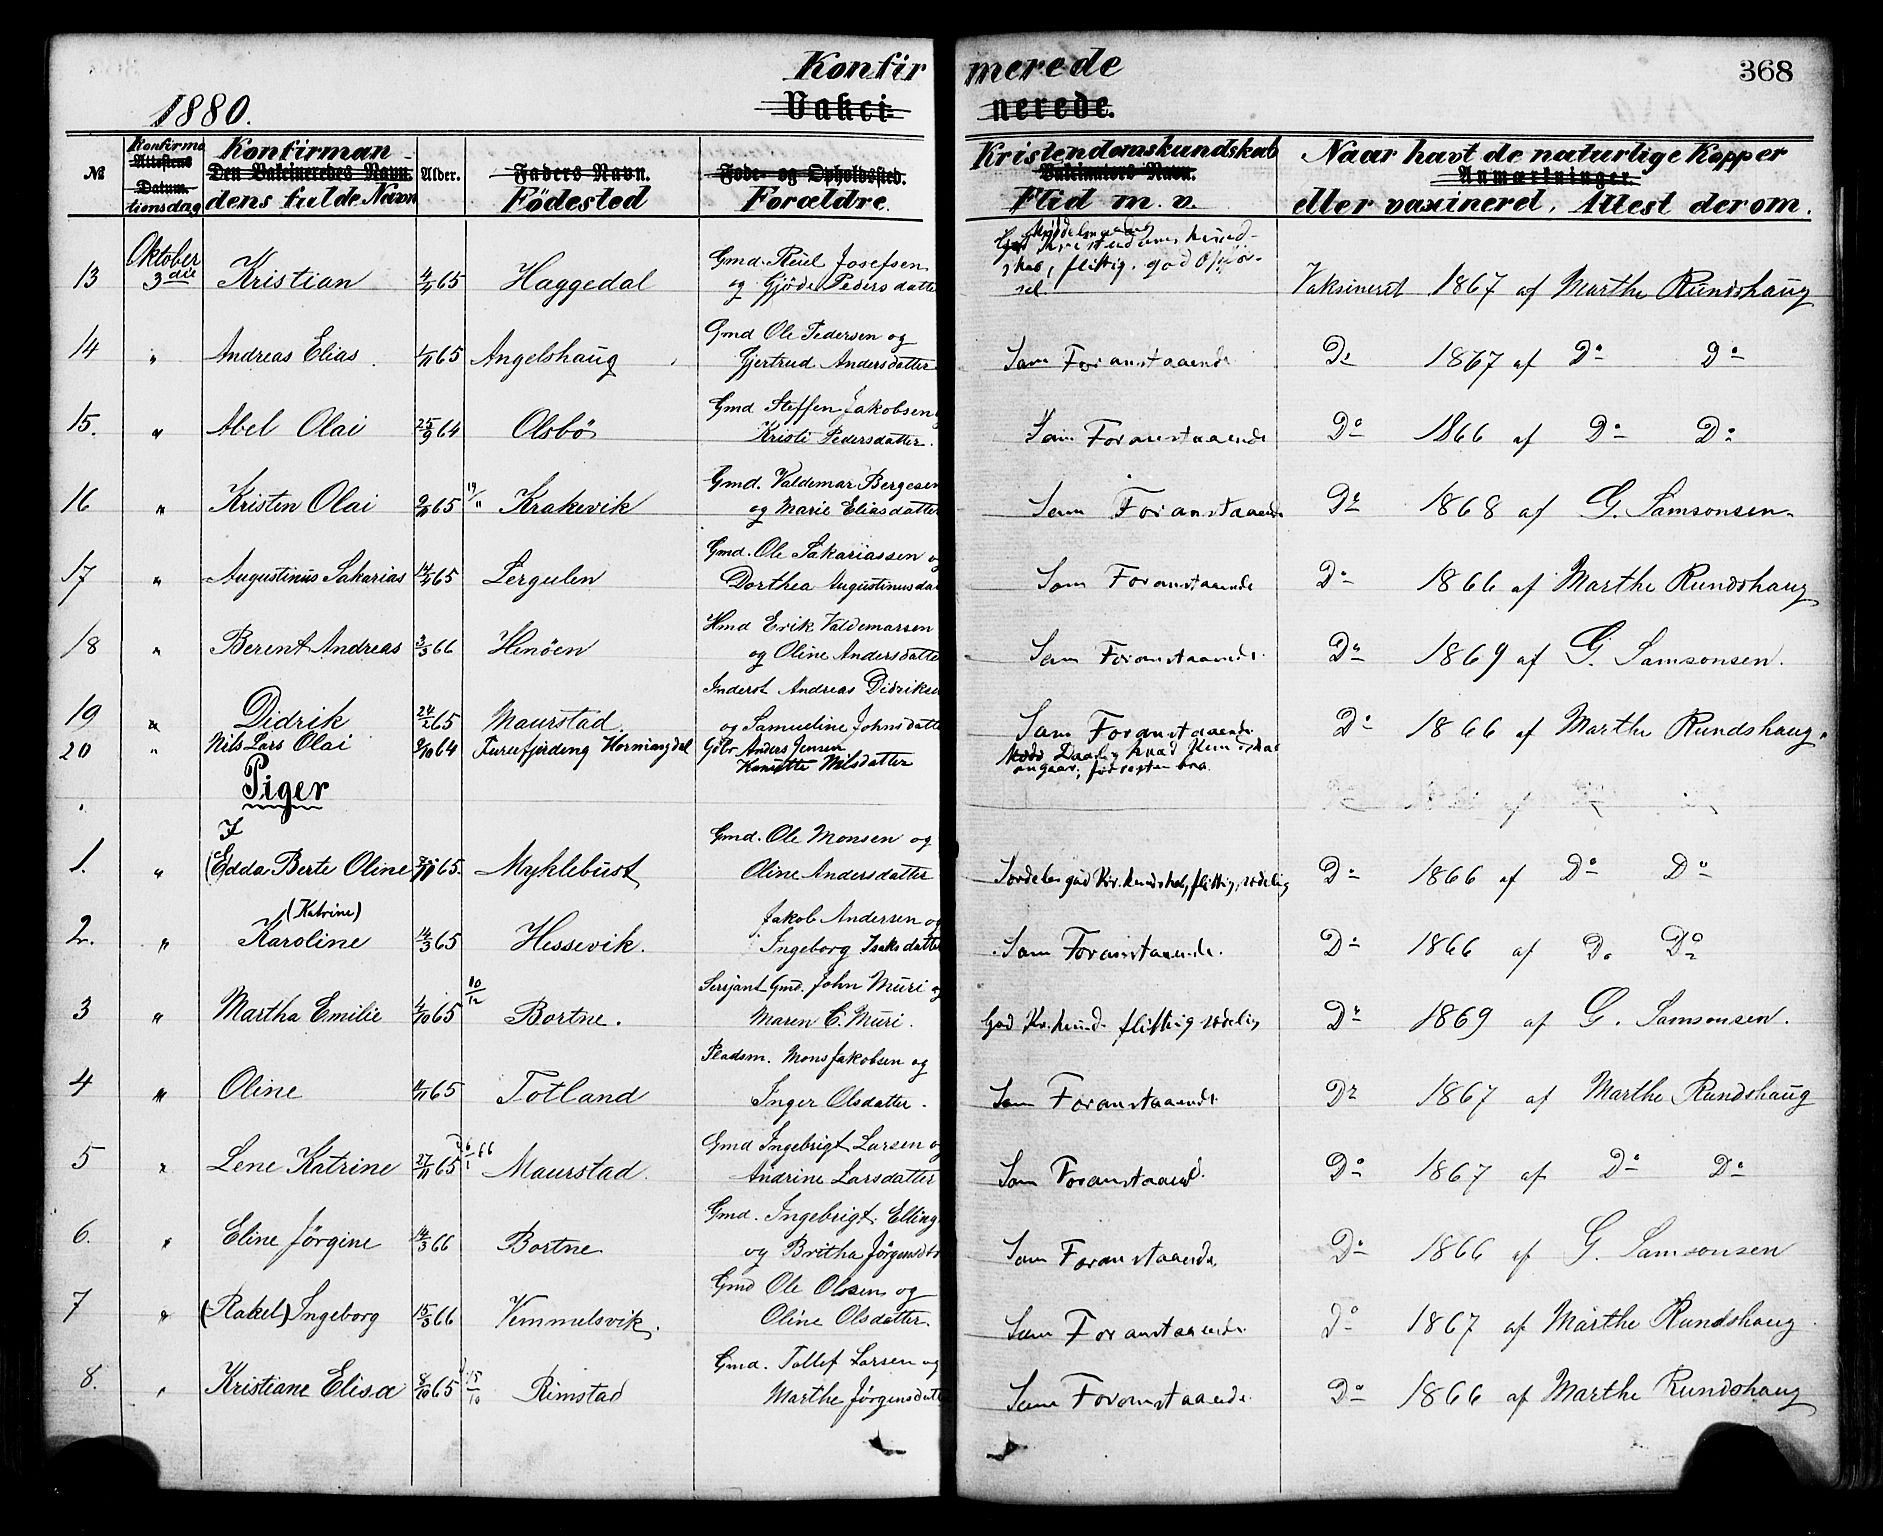 Konfirmerede
368
1880.
Vakcinerede.
№ Konfirma Attestens Datum. tionsdag Konfirman Den Vakcineredes Navn. dens fulde Navn Alder. Faders Navn. Födested Føde- og Opholdssted. Forældre. Kristendomskundskab Vakcinators Navn. Flid m. v. Naar havt de naturlige Kopper Anmærkninger. eller vaxineret, Attest derom.
13 Oktober 3die Kristian 65 Haggedal Gmd. Josefsen og Pedersdatter Kristendomskundskab, flittig, god Vaksineret 1867 af Marthe Rundshaug
14 " Andreas Elias 65 Angelshaug Gmd Ole Pedersen og Gjertrud Andersdatter Som Foranstaaende Do 1867 af Do Do
15. " Abel Olai 25/9 64 Olsbö Gmd Steffen Jakobsen Kristi Pedersdatter. Som Foranstaaende Do 1866 af Do Do
16 " Kristen Olai 65 19/" Krakevik Gmd. Valdemar Bergesen og Marie Eliasdatter Som Foranstaaende Do 1868 af G. Samsonsen.
17 " Augustinus Sakarias 65 Lergulen Gmd. Ole Sakariassen og Dorthea Augustinusdat Som Foranstaaende Do 1866 af Marthe Rundshaug
18 " Berent Andreas 66 Henöen Hmd Erik Valdemarsen og Oline Andersdatter Som Foranstaaende. Do 1869 af G. Samsonsen.
19 " Didrik 24/2 65 Maurstad Inderst Andreas Didriksen og Samueline Johnsdatter Som Foranstaaende Do 1866 af Marthe Rundshaug.
20 " Nils Lars Olai 64 Hornindal Gbr Anders Jensen Nilsdatter Daarlig hvad Kundskab angaar, forresten bra.
Piger
1. " (Edda Berte Oline 65. Myklebust Gmd. Ole Monsen og Oline Andersdatter Do 1866 af Do Do
2. " (Katrine) Karoline 14/3 65 Hessevik. Jakob Andersen og Ingeborg Isaksdatter Som Foranstaaende. Do 1866 af Do Do
3 " Martha Emilie 4/10 65 10/12 Bortne. Serjant Gmd. John Muri og Maren E. Muri. God Kr.kund. flittig sedelig Do 1869 af G. Samsonsen.
4 " Oline 65 Totland Pladsm. Mons Jakobsen og Inger Olsdatter. Som Foranstaaende Do 1867 af Marthe Rundshaug
5 " Lene Katrine 27/11 65 66 Maurstad. Gmd Ingebrigt Larsen og Andrine Larsdatter Som Foranstaaend. Do 1867 af Do Do
6. " Eline Jörgine 14/3 66 Bortne Gmd. Ingebrigt Elling og Britha Jörgensdtr Som Foranstaaende. Do 1866 af G. Samsonsen
7 " (Rakel) Ingeborg 15/3 66 Vemmelsvik. Gmd Ole Olssen og Oline Olsdatter. Som Foranstaaende Do 1867 af Marthe Rundshaug
8. " Kristiane Elisa 8/10 65 15/10 Rimstad Gmd. Tollef Larsen og Marthe Jörgensdatter Som Foranstaaende. Do 1866 af Marthe Rundshaug